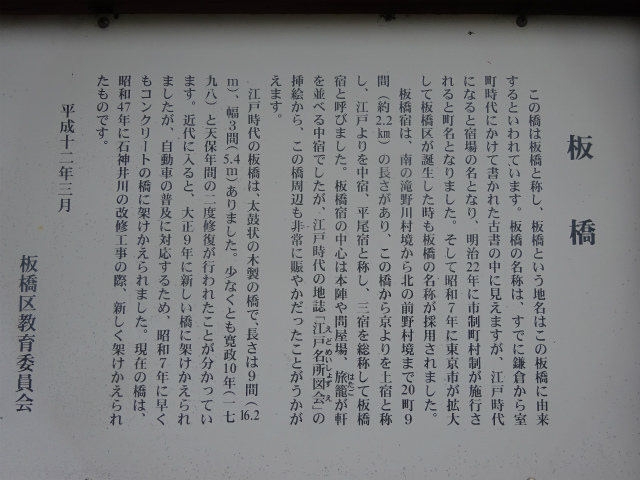 板橋
この橋は板橋と称し、板橋という地名はこの板橋に由来
するといわれています。板橋の名称は、すでに鎌倉から室
町時代にかけて書かれた古書の中に見えますが、江戸時代
になると宿場の名となり、明治22年に市制町村制が施行さ
れると町名となりました。そして昭和7年に東京市が拡大
して板橋区が誕生した時も板橋の名称が採用されました。
板橋宿は、南の滝野川村境から北の前野村境まで20町9
間（約2.2㎞）の長さがあり、この橋から京よりを上宿と称
し、江戸よりを中宿、平尾宿と称し、三宿を総称して板橋
宿と呼びました。板橋宿の中心は本陣や問屋場、旅籠が軒
を並べる中宿でしたが、江戸時代の地誌「江戸名所図会」の
挿絵から、この橋周辺も非常に賑やかだったことがうかが
えます。
江戸時代の板橋は、太鼓状の木製の橋で、長さは9間（16.2
m）、幅3間（5.4m）ありました。少なくとも寛政10年（一七
九八）と天保年間の二度修復が行われたことが分かってい
ます。近代に入ると、大正9年に新しい橋に架けかえられ
ましたが、自動車の普及に対応するため、昭和7年に早く
もコンクリートの橋に架けかえられました。現在の橋は、
昭和47年に石神井川の改修工事の際、新しく架けかえられ
たものです。
平成十二年三月
板橋区教育委員会